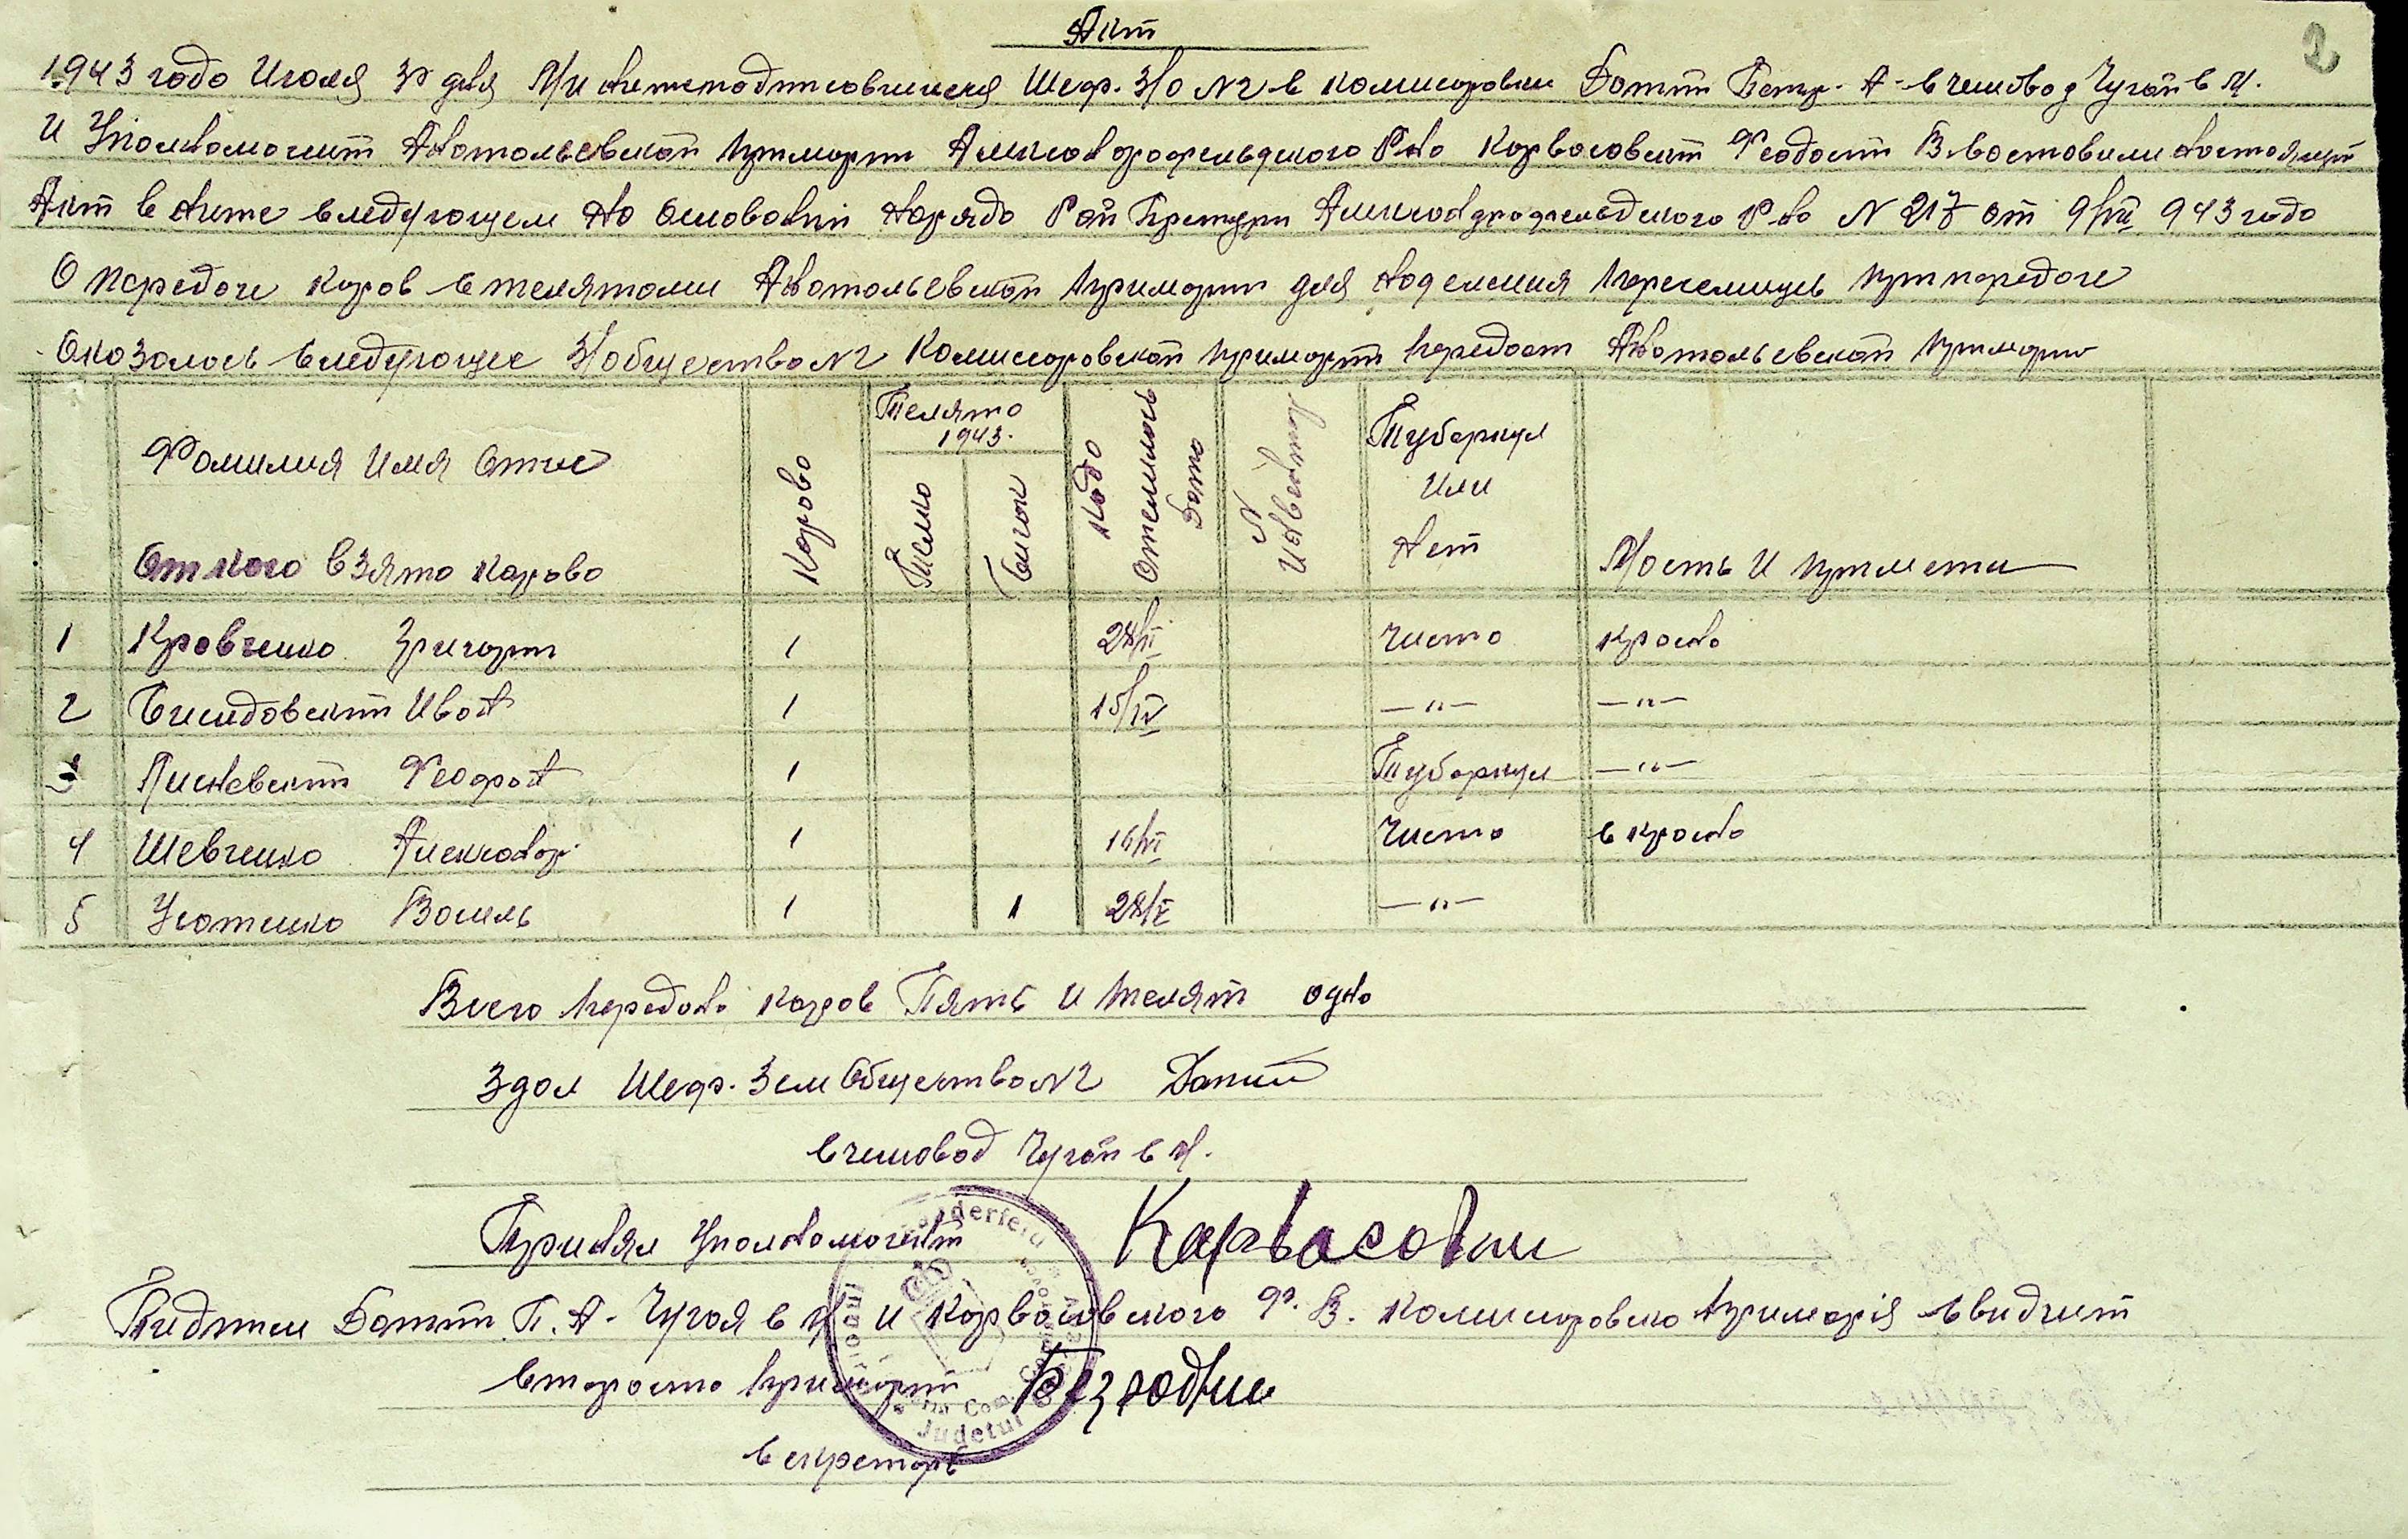 Акт
2
1943 года Июля 30 дня Мы нижеподписавшиеся Шеф. З/О №2 в Комисоровки Батий Петр. А- Счиновод Чугай в И.
И Уполномочений Анатольевской примарии Александрофельдского Р-на Карвасовский Феодосий В Состовили настоящий
Акт в ниже следующем на основоний наряда Рай Претури Александрофельдского Р-на № 217 от 9/VII 943 года
О передаче коров с телятами Анатольевской примарии для наделения переселинць при передаче
Оказалось следующее З/общество №2 Комисоровской примарии передает Анатольевской примарии
Фамилия Имя Отче
От кого взята карова
Карова
Телята
1943.
Тёлка
Бычок
Когда
Отелилась
дата
№
Инвентар
Туберкул
Или
Нет
Масть И приметы
1 Кравченко Григорий 1 28/VI чиста красна
2 Бисидовский Иван 1 15/IV —"— —"—
3 Лисневский Феофан 1 Туберкул —"—
4 Шевченко Александр 1 16/VI чиста с красна
5 Усатенко Василь 1 1 28/V —"—
Всего передано каров Пять и телят одно
Здал Шеф. Зем Общества №2 Батий
Счиновод Чугай в И.
Принял Уполномочений Карвасовски
Пидписи Батий П. А- Чугая в И и Карвасовского Ф. В. Комисоровска примарія свидчит
Староста примарии Безродни
Секретарь
Judetul